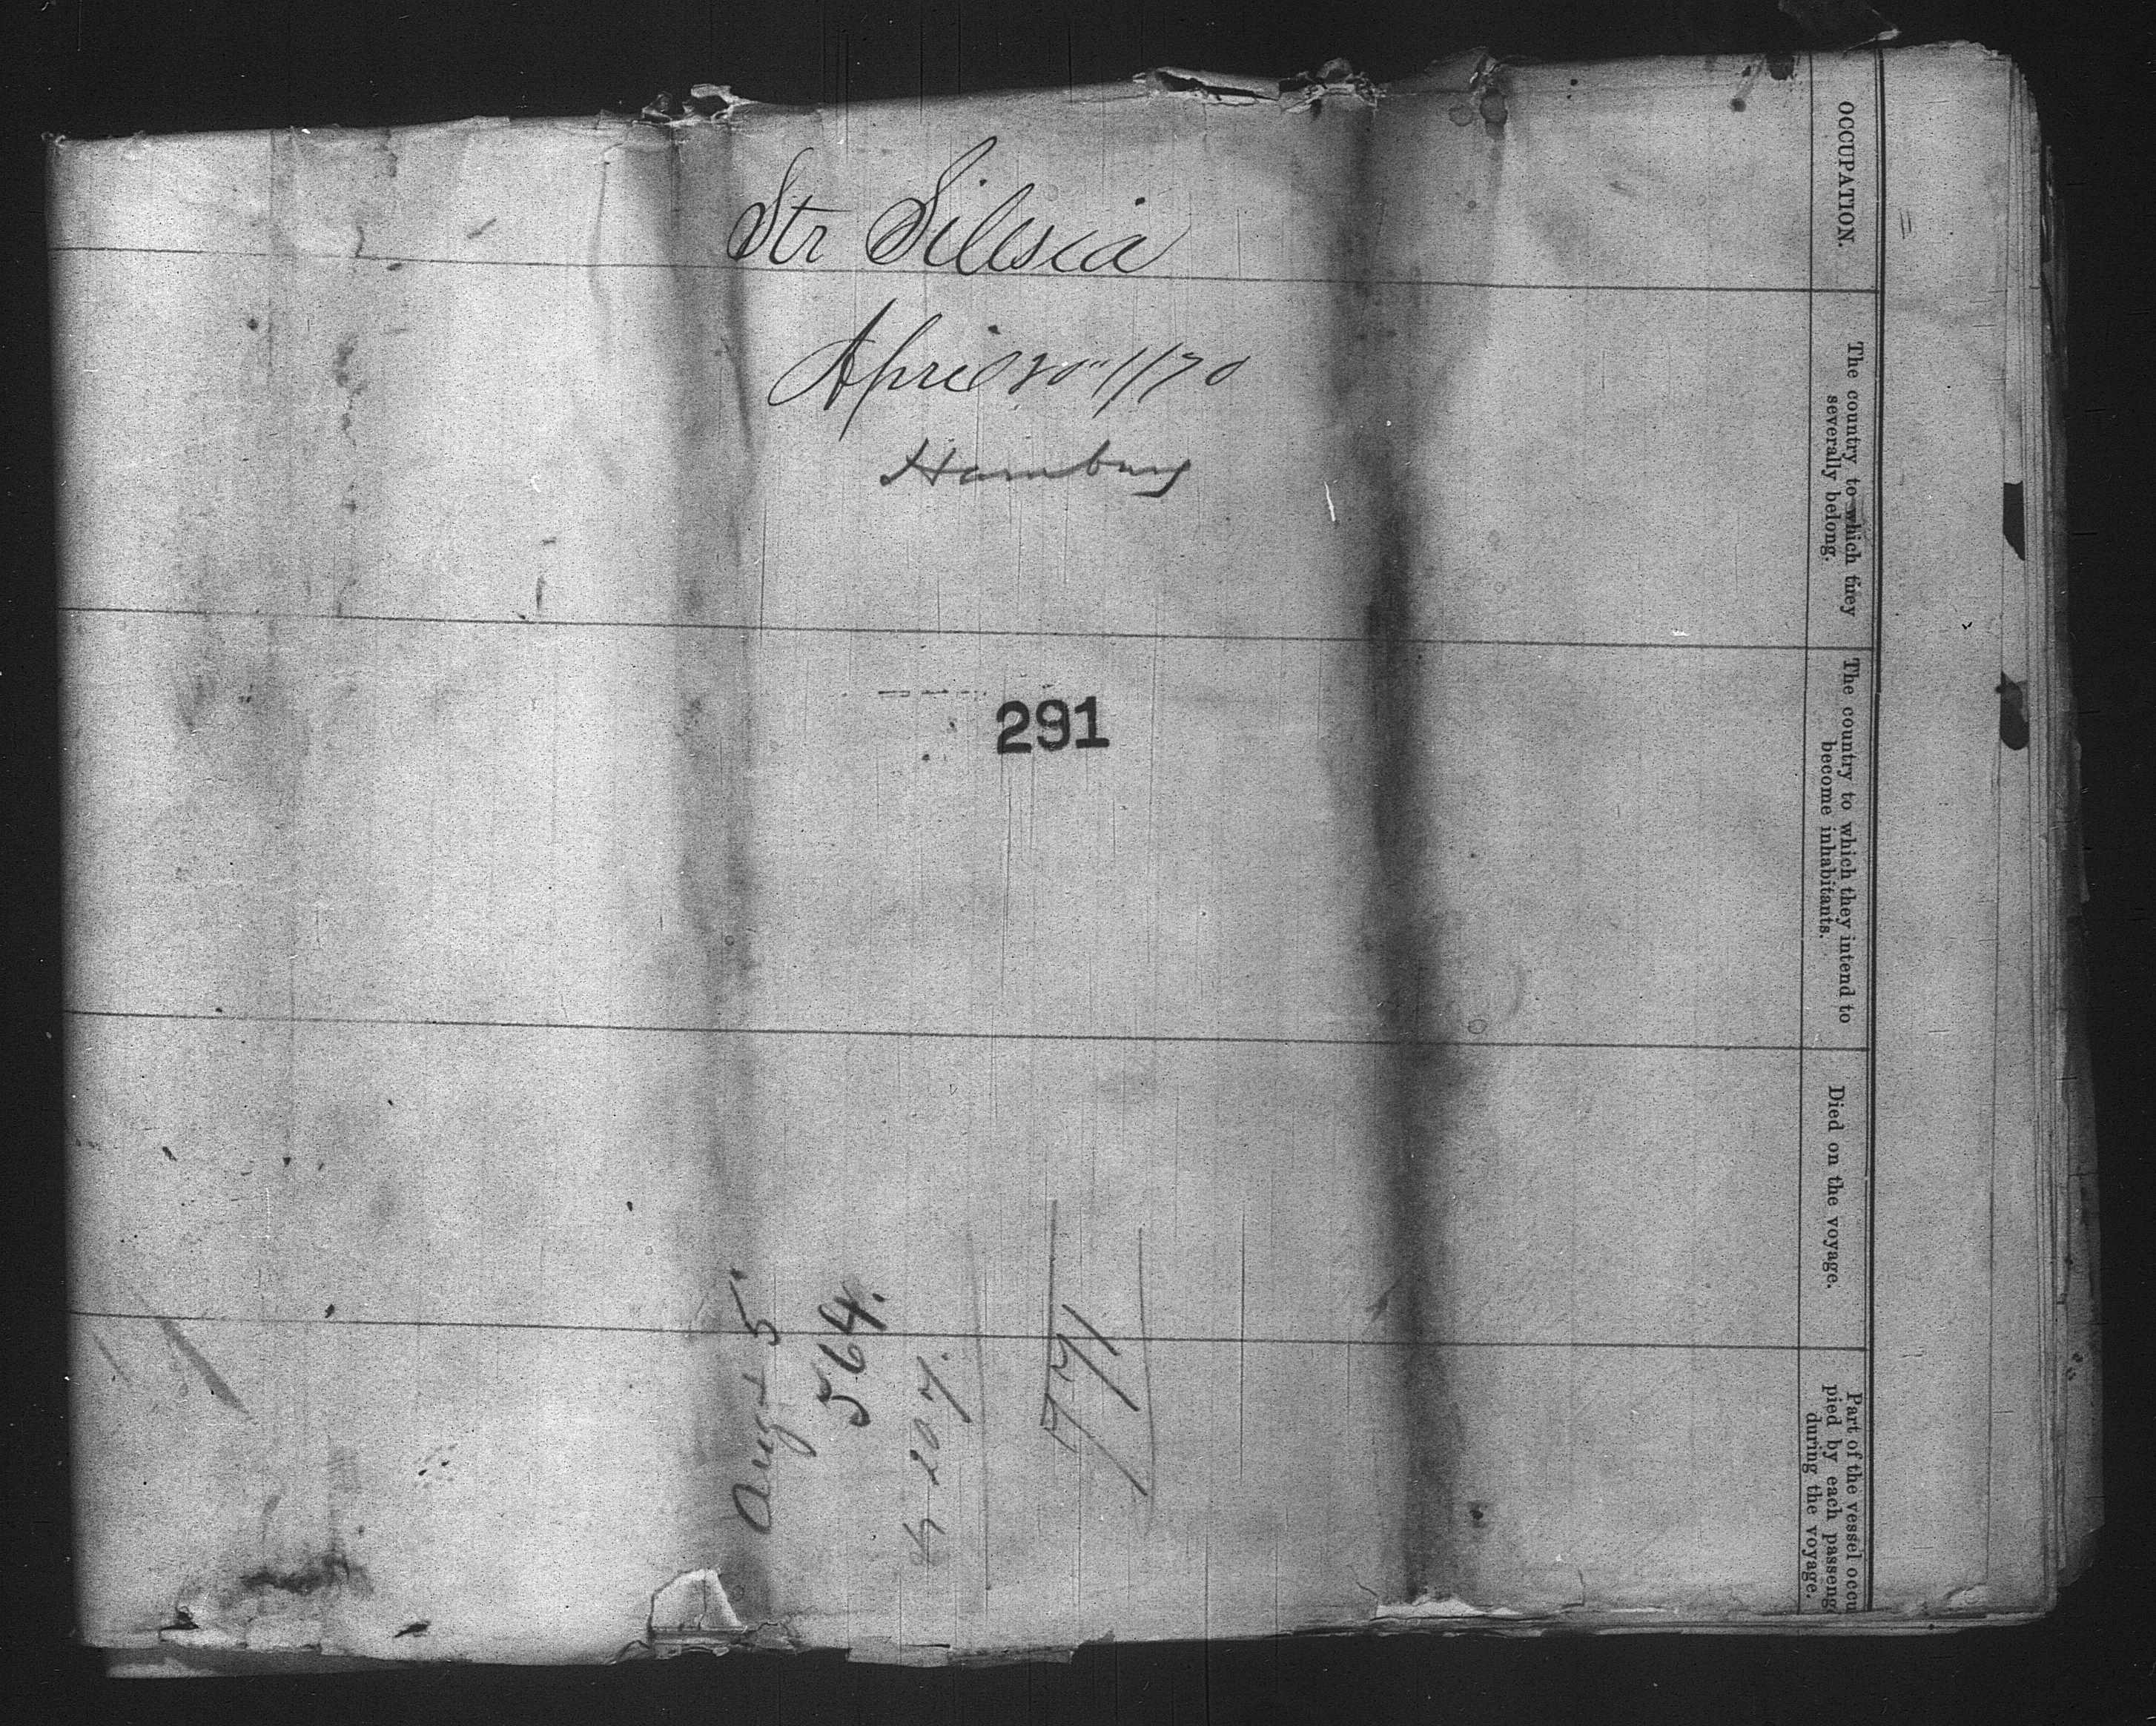 Str Silesia
April 20" 1/70
Hamburg
291
Augt 5
564.
207.
771
OCCUPATION.
The country to which they
severally belong.
The country to which they intend to
become inhabitants.
Died on the voyage.
Part of the vessel occu
pied by each passeng
during the voyage.